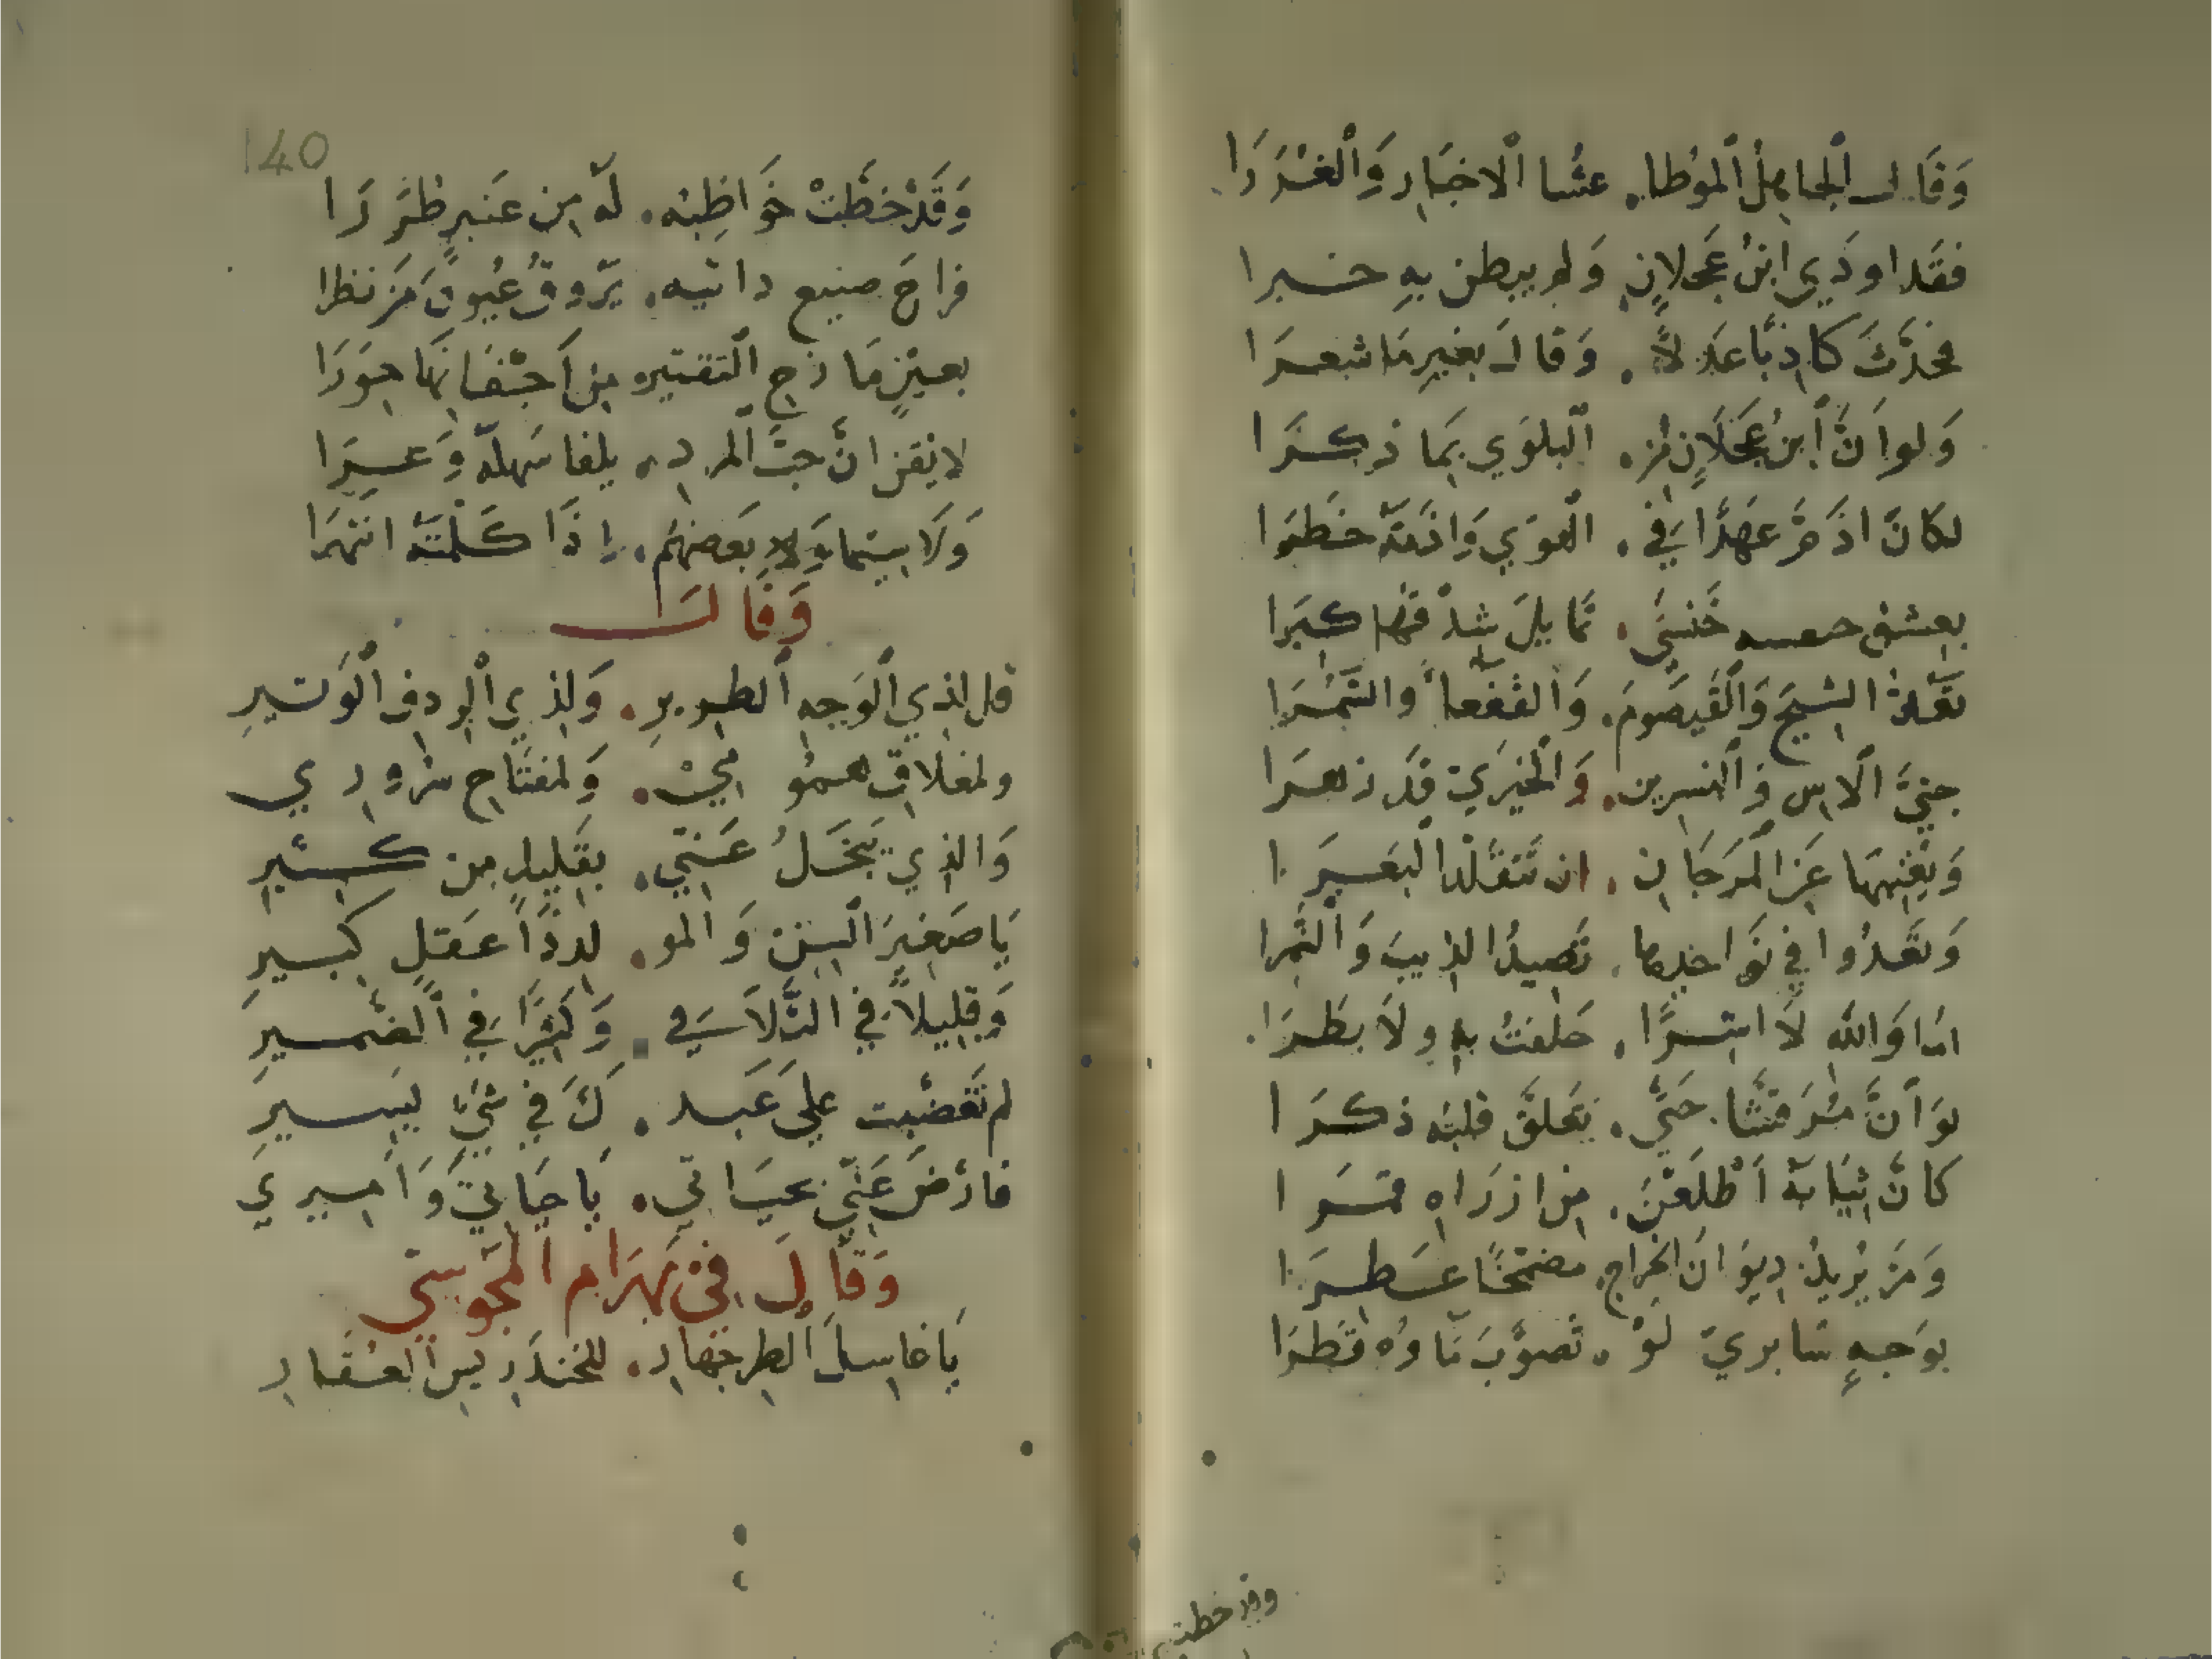 وَقَال الْجاهِلُ المُوطا. عشا الاخبَار وَالْغُدُرَا
فقَدا وذي ابنُ عَجلانٍ وَلم يبطن بهِ خبرا
محدّثَ كاذبًا عدلاً. وَقالَ بغيرِ مَا شعرَا
وَلوانَّ ابنُ عَجْلانٍ مُر. البلوَي بمَا ذكرَا
لكانَ اذ مرَّ عهدًا في. الهوَي وَاذقهُ خطرَا
بعشق خَنثى. تمايلَ شدقها كبَرا
تعَلفُ الشيحَ وَالقيصَومَ. وَالقفعا وَالتمُرَا
جنيَّ الاس وَالنسرين. وَالخيرَيّ قد زهرَا
وَيُغنيهَا عَن المرجَان. ان تتقلّد البعرَا
وَتغدُوا في نوَاحيها. تَصيدُ الذيبَ وَالنمرا
امَا وَالله لا اشرًا. حَلفتُ بهِ وَلا بطرَا.
لوَ انَّ مُرَقشا حَيّ. تعلقَ قلبُه ذكرَا
كانَ ثيَابهُ اطلَعْنَ. من ازرَاره قمرَا
وَمرَّ يُريدُ ديوَانَ الخراج مضمخًا عَطرَا
بوَجهٍ سَابريّ لَوْ. تصوّبَ مَاوُه قطرَا
وقد خطت
140
وَقَدْ خطّتْ خوَاطِبُه. لهُ من عَنبرٍ طُرَرَا
فراحَ صنيع دايته. يَروقُ عُيونَ مَن نظرا
بعينٍ مَازجِ التفتير من اَجْفانهَا حوَرَا
لايقن انَّ حبّ المرد. يلفا سَهلهُ وَعسرَا
وَلا سيما وَلا بعَضهُم. اِذَا كلمّتهُ انتهرَا
وَقال
قل لذي الوَجه الطرير. وَلذي الردف الوَثيرِ
ولمغلاق همُومي. وَلمفتاح سُروري
وَالذي يبخَلُ عَنّي. بقَليلٍ من كثيرِ
يَا صَغيرَ السِن وَالمو. لد ذَا عقلٍ كبيرِ
وَقليلاً في التّلاَقي. وَكثيرًا في الضميرِ
لم تغضّبت علي عَبد. كَ في شيٍّ يسيرِ
فارْضَ عَنّي بحيَاتي. يَا حيَاتي وَاميري
وَقَالَ في بَهرَام المَجوُسيّ
يَا غاسِلَ الطرجَهارِ. للخندَريسِ العُقار